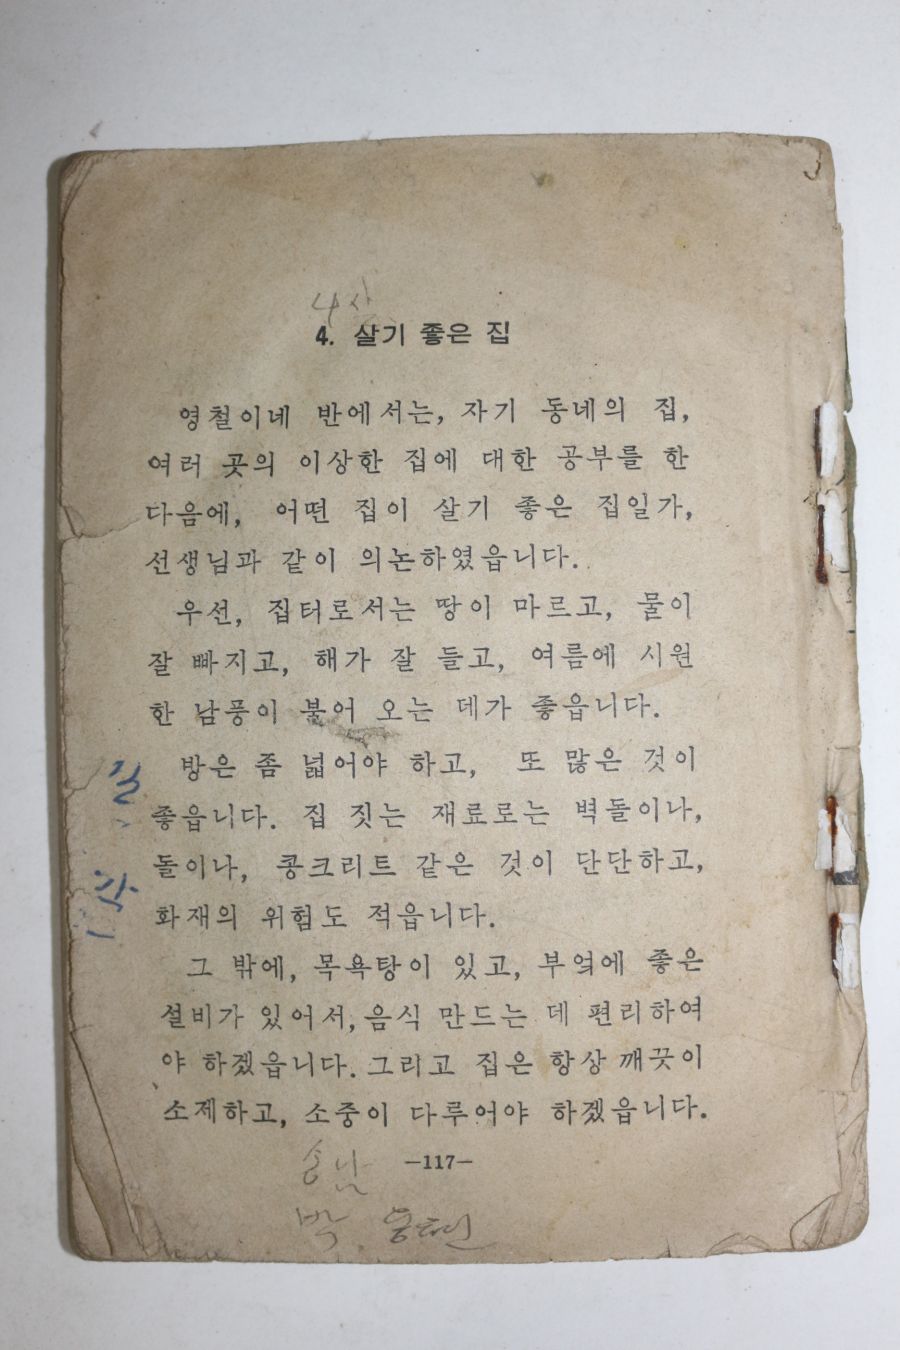 4. 살기 좋은 집
영철이네 반에서는, 자기 동네의 집,
여러 곳의 이상한 집에 대한 공부를 한
다음에, 어떤 집이 살기 좋은 집일가,
선생님과 같이 의논하였읍니다.
우선, 집터로서는 땅이 마르고, 물이
잘 빠지고, 해가 잘 들고, 여름에 시원
한 남풍이 불어 오는 데가 좋읍니다.
방은 좀 넓어야 하고, 또 많은 것이
좋읍니다. 집 짓는 재료로는 벽돌이나,
돌이나, 콩크리트 같은 것이 단단하고,
화재의 위험도 적읍니다.
그 밖에, 목욕탕이 있고, 부엌에 좋은
설비가 있어서, 음식 만드는 데 편리하여
야 하겠읍니다. 그리고 집은 항상 깨끗이
소제하고, 소중이 다루어야 하겠읍니다.
—117—